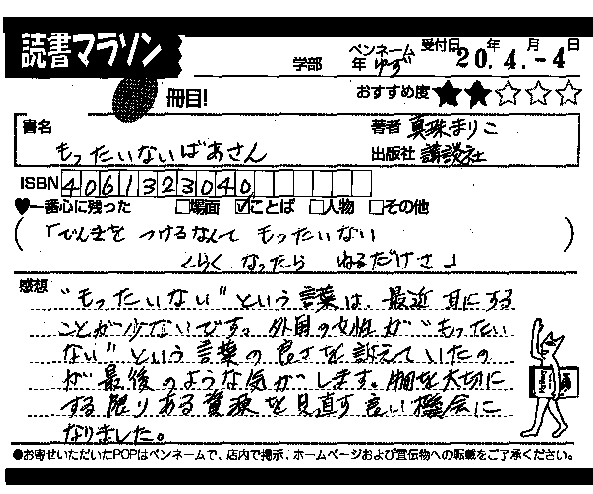 読書マラソン
学部 年 ペンネーム ゆず 受付日 20年4.月-4日
冊目! おすすめ度★★☆☆☆
書名 もったいないばあさん 著者 真珠まりこ
出版社 講談社
ISBN 4061323040
♥一番心に残った □場面 ☑ことば □人物 □その他
(「でんきを つけるなんて もったいない
くらく なったら ねるだけさ」)
感想 "もったいない"という言葉は、最近耳にする
ことが少ないです。外国の女性が"もったい
ない"という言葉の良さを訴えていたの
が最後のような気がします。物を大切に
する限りある資源を見直す良い機会に
なりました。
●お寄せいただいたPOPはペンネームで、店内で掲示、ホームページおよび宣伝物への転載をご了承ください。